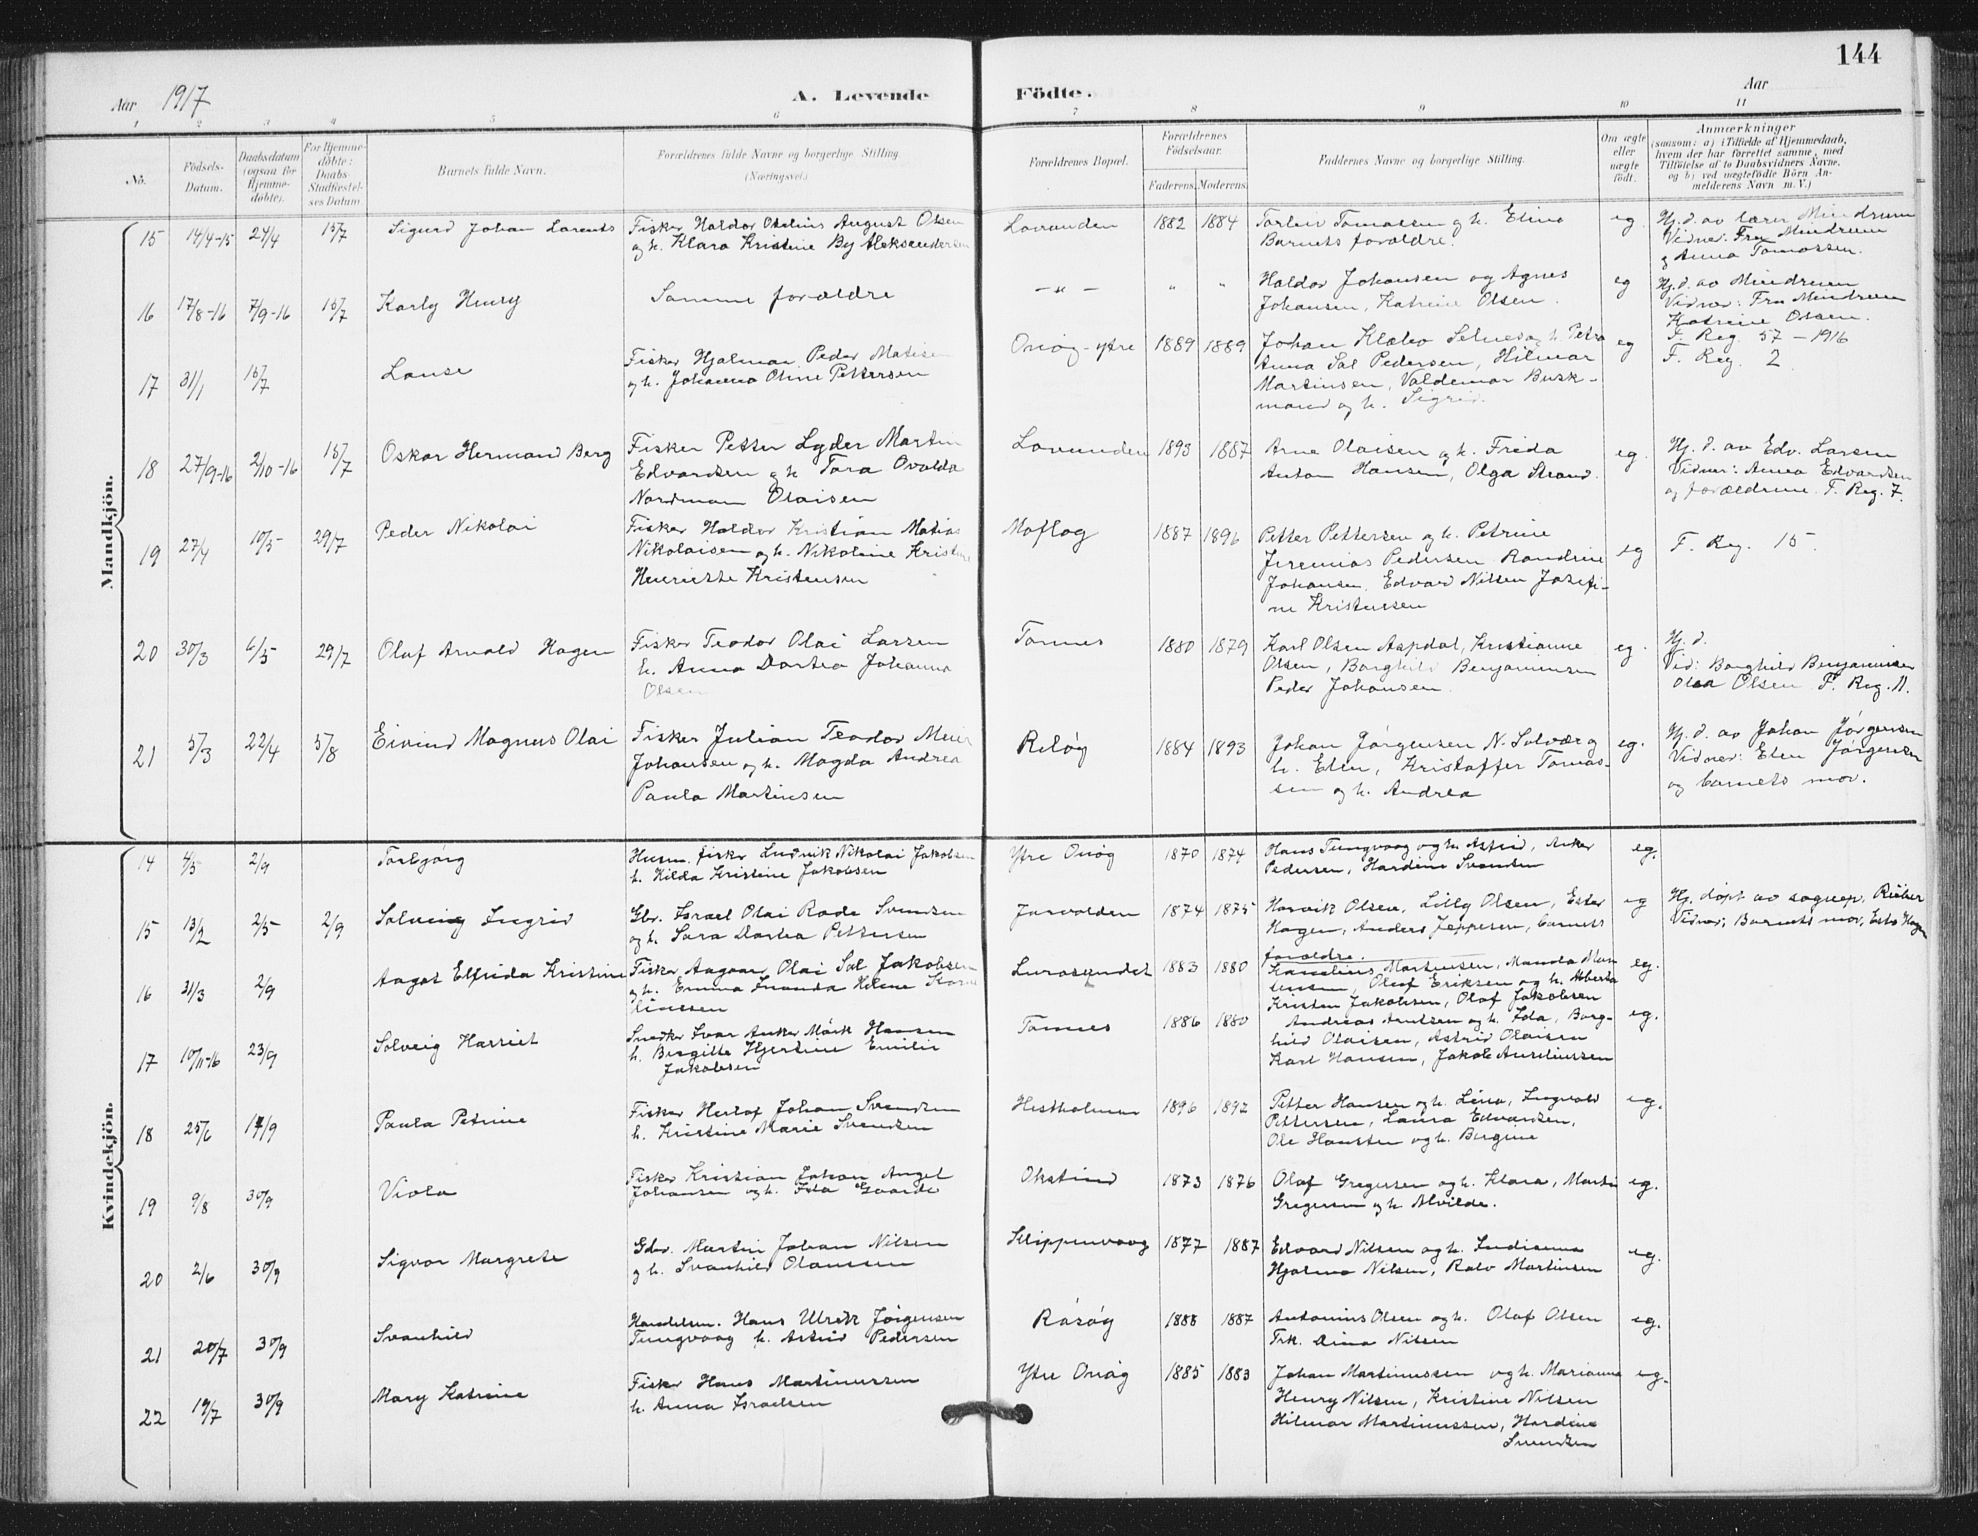 144
Aar 1917
A. Levende Födte.
Aar
1 2 3 4 5 6 7 8 9 10 11
No.
Födsels-Datum.
Daabsdatum (ogsaa for Hjemme-döbte).
For Hjemme-döbte: Daabs Stadfæstel-ses Datum
Barnets fulde Navn.
Forældrenes fulde Navne og borgerlige Stilling. (Næringsvei.)
Forældrenes Bopæl.
Forældrenes Födselsaar.
Faderens. Moderens.
Faddernes Navne og borgerlige Stilling.
Om ægte eller uægte födt.
Anmærkninger
(saasom: a) i Tilfælde af Hjemmedaab,
hvem der har forrettet samme, med
Tilföielse af to Daabsvidners Navne,
og b) ved uægtefödte Börn An-
melderens Navn m. V.)
Mandkjön.
15 14/4-15 24/4 15/7 Sigurd Johan Larents
Fisker Haldor Otelius August Olsen
og h. Klara Kristine By Aleksandersen
Lovunden 1882 1884
Torleiv Tomassen og h. Elina
Barnets forældre.
eg
Hj. d. av lærer Mindrum
Vidner: Fru Mindrum
og Anna Tomassen.
16 17/8-16 7/9-16 15/7 Karly Henry
Samme forældre
- " - " "
Haldor Johansen og Agnes
Johansen, Katrine Olsen.
eg
Hj. d. av Mindrum
Vidner: Fru Mindrum
Katrine Olsen.
F. Reg. 57 - 1916
17 31/1 15/7
Fisker Hjalmar Peder Matisen
og h. Johanna Oline Pettersen
Onöy-ytre 1889 1889
Johan Klæbo Selnes og h. Petra
Anna Sal Pedersen, Hilmar
Martinsen, Valdemar Busk-
mand og h. Sigrid.
eg
F. Reg. 2
18 27/9-16 2/10-16 15/7 Oskar Hermand Berg
Fisker Petter Lyder Martin
Edvardsen og h. Tora Ovalda
Nordman Olaisen
Lovunden 1893 1887
Arne Olaisen og h. Frida
Anton Hansen, Olga Strand.
eg.
Hj. d. av Edv. Larsen
Vidner: Anna Edvardsen
og forældrene. F. Reg. 7.
19 27/4 10/5 29/7 Peder Nikolai
Fisker Haldor Kristian Matias
Nikolaisen og h. Nikoline Kristine
Henriette Kristensen
Moflag 1887 1896
Petter Pettersen og h. Petrine
Jeremias Pedersen Randine
Johansen, Edvard Nilsen Josefi-
ne Kristensen
eg
F. Reg. 15.
20 30/3 6/5 29/7 Olaf Arnold Hagen
Fisker Teodor Olai Larsen
h. Anna Dortea Johanna
Olsen
Tonnes 1880 1879
Karl Olsen Aspdal, Kristianne
Olsen, Borghild Benjaminsen
Peder Johansen.
eg.
Hj. d.
Vid: Borghild Benjaminsen
Olea Olsen F. Reg. 11.
21 5/3 22/4 5/8 Eivind Magnus Olai
Fisker Julian Teodor Meier
Johansen og h. Magda Andrea
Paula Martinsen
Relöy 1884 1893
Johan Jörgensen N. Solvær og
h. Elen, Kristoffer Tomas-
sen og h. Andrea
eg.
Hj. d. av Johan Jörgensen
Vidner: Elen Jörgensen
og barnets mor.
Kvindekjön.
14 4/5 2/9 Torbjörg
Husm. fisker Ludvik Nikolai Jakobsen
h. Hilda Kristine Jakobsen
Ytre Onöy 1870 1874
Hans Tungvaag og h. Astrid, Anker
Pedersen, Hardine Svendsen
eg.
15 13/2 2/5 2/9 Solveig Ingrid
Gbr. Israel Olai Rode Svendsen
og h. Sara Dortea Pettersen
1874 1875
Harvik Olsen, Lilly Olsen, Ester
Hagen, Anders Jeppesen, barnets
forældre.
eg
Hj. döpt av sognepr. Riiber
Vidner: Barnets mor, Ester Hagen
16 31/3 2/9 Aagot Elfrida Kristine
Fisker Aagaar Olai Sal Jakobsen
og h. Emma Iranda Helene Kor
linessen
Lurosundet 1883 1880
Kornelius Martinsen, Manda Mar
tinsen, Oluf Eriksen og h. Alberta
Kristen Jakobsen, Olaf Jakobsen
eg.
17 10/11-16 23/9 Solveig Harriet
Snedker Ivar Anker Mörk Hansen
h. Birgitte Hjertine Emilie
Jakobsen
Tonnes 1886 1880
Andreas Arntsen og h. Ida, Borg-
hild Olaisen, Astrid Olaisen
Karl Hansen, Jakob Aureliussen
eg.
18 25/6 17/9 Paula Petrine
Fisker Herlof Johan Svendsen
h. Kristine Marie Svendsen
Hestholmen 1896 1892
Petter Hansen og h. Lina, Ingvald
Pettersen, Laura Edvardsen,
Ole Hansten og h. Bergine
eg.
19 9/8 30/9 Viola
Fisker Kristian Johan Angel
Johansen og h. Ida Gaarde
Okstind 1873 1876
Olaf Gregersen og h. Klara, Martin
Gregersen og h. Alvilde.
eg.
20 2/6 30/9 Sigvor Margrete
Gdbr. Martin Johan Nilsen
og h. Svanhild Olaussen
Klippenvaag 1877 1887
Edvard Nilsen og h. Indianna
Hjalma Nilsen, Rolv Martinsen
eg.
21 20/7 30/9 Svanhild
Handelsm. Hans Ulrik Jörgensen
Tungvaag h. Astrid Pedersen
Räsöy 1888 1887
Antonius Olsen og h. Olaf Olsen
Frk. Dina Nilsen
eg.
22 19/7 30/9 Mary Katrine
Fisker Hans Martinussen
h. Anna Israelsen
Ytre Onöy 1885 1883
Johan Martinussen og h. Marianna
Henry Nilsen, Kristine Nilsen
Hilmar Martinussen, Hardine
Svendsen
eg.